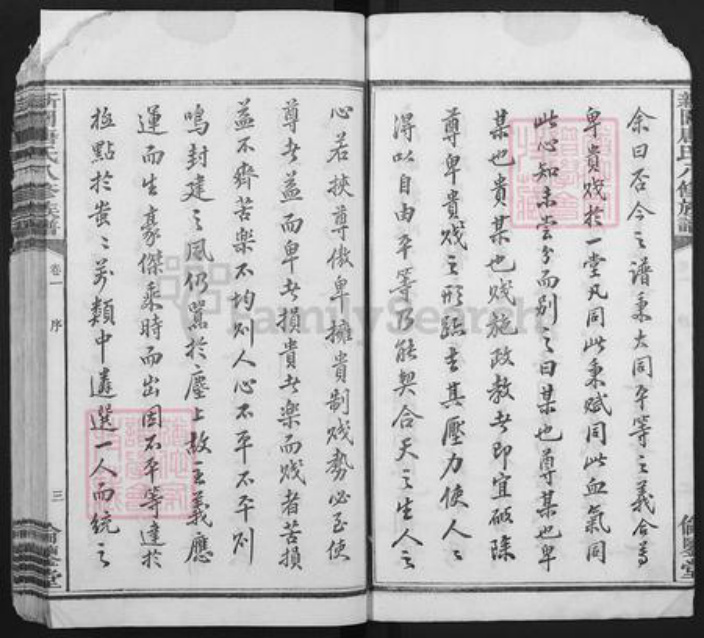 余曰否今之譜秉大同平等之義合尊
卑貴賤於一堂凡同此秉賦同此血氣同
此心知未嘗分而別之曰某也尊某也卑
某也貴某也賤施政教者即宜破除
尊卑貴賤之形跡去其壓力使人〻
得以自由平等乃能契合天之生人之
心若挾尊傲卑擁貴制賤勢必至使
尊者益而卑者損貴者樂而賤者苦損
益不齊苦樂不均則人心不平不平則
鳴封建之風仍囂於塵上故主義應
運而生豪傑乘時而出因不平等達於
極點於蚩〻萬類中遴選一人而統之
新圖唐氏八修族譜
卷一
序
三
倫鑒堂
FamilySearch